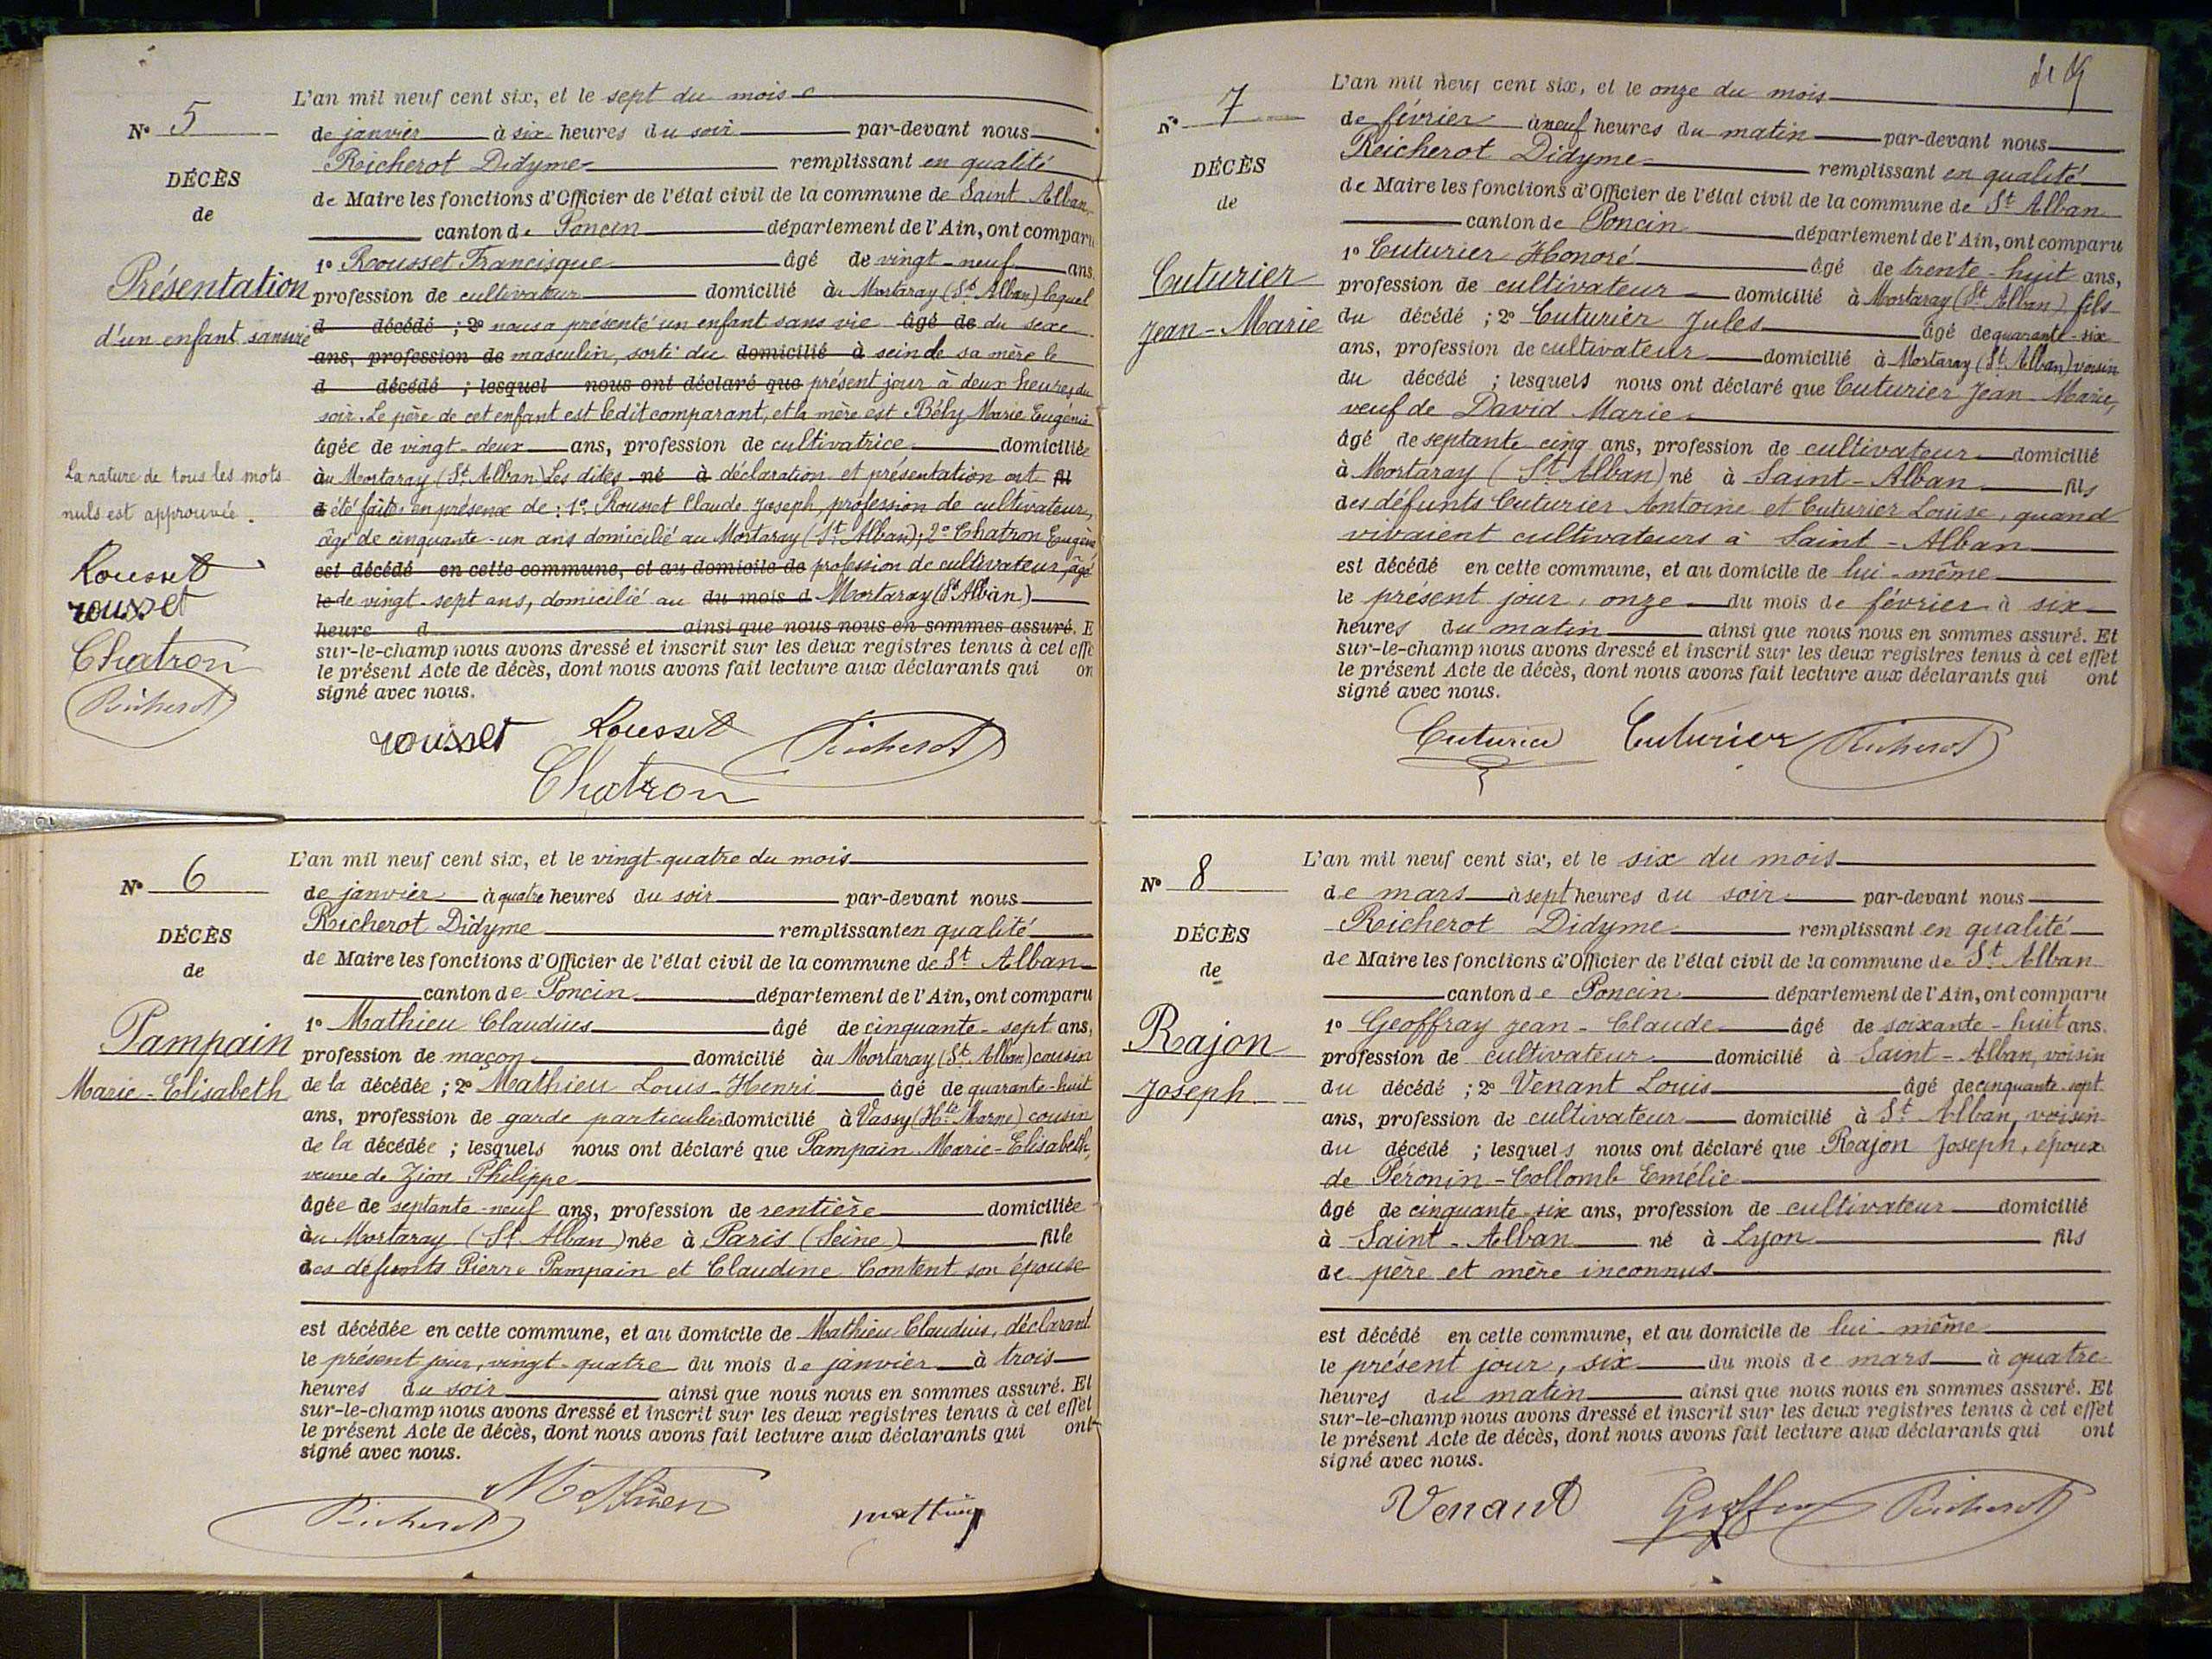 N° 5
DÉCÈS
de
Présentation
d'un enfant sans vie
La rature de tous les mots
nuls est approuvée.
Rousset
rousset
Chatron
Richerot
L'an mil neuf cent six, et le sept du mois
de janvier à six heures du soir par-devant nous
Richerot Didyme remplissant en qualité
de Maire les fonctions d'Officier de l'état civil de la commune de Saint Alban
canton de Poncin département de l'Ain, ont comparu
1° Rousset Francisque âgé de vingt-neuf ans,
profession de cultivateur domicilié au Mortaray (St Alban) lequel
d décédé ; 2° nous a présenté un enfant sans vie âgé de du sexe
ans, profession de masculin, sorti du domicilié à sein de sa mère le
d décédé ; lesquel nous ont déclaré que présent jour à deux heures du
soir. Le père de cet enfant est ledit comparant, et la mère est Bély Marie Eugénie
âgée de vingt-deux ans, profession de cultivatrice domiciliée
au Mortaray (St Alban) Les dites né à déclaration et présentation ont fil
d été faites en présence de : 1° Rousset Claude Joseph, profession de cultivateur,
âgé de cinquante-un ans domicilié au Mortaray (St Alban); 2° Chatron Eugène
est décédé en cette commune, et au domicile de profession de cultivateur, âgé
le de vingt-sept ans, domicilié au du mois d Mortaray (St Alban)
heure d ainsi que nous nous en sommes assuré. E
sur-le-champ nous avons dressé et inscrit sur les deux registres tenus à cet effe
le présent Acte de décès, dont nous avons fait lecture aux déclarants qui on
signé avec nous.
rousset Rousset Richerot
Chatron
N° 6
DÉCÈS
de
Pampain
Marie-Elisabeth
L'an mil neuf cent six, et le vingt-quatre du mois
de janvier à quatre heures du soir par-devant nous
Richerot Didyme remplissant en qualité
de Maire les fonctions d'Officier de l'état civil de la commune de St Alban
canton de Poncin département de l'Ain, ont comparu
1° Mathieu Claudius âgé de cinquante-sept ans,
profession de maçon domicilié au Mortaray (St Alban) cousin
de la décédée ; 2° Mathieu Louis-Henri âgé de quarante-huit
ans, profession de garde particulier domicilié à Vassy (Hte Marne) cousin
de la décédée ; lesquels nous ont déclaré que Pampain Marie-Elisabeth,
veuve de Zion Philippe
âgée de septante-neuf ans, profession de rentière domiciliée
au Mortaray (St Alban) née à Paris (Seine) fille
des défunts Pierre Pampain et Claudine Content son épouse
est décédée en cette commune, et au domicile de Mathieu Claudius, déclarant
le présent jour, vingt-quatre du mois de janvier à trois
heures du soir ainsi que nous nous en sommes assuré. Et
sur-le-champ nous avons dressé et inscrit sur les deux registres tenus à cet effet
le présent Acte de décès, dont nous avons fait lecture aux déclarants qui ont
signé avec nous.
Richerot Mathieu mathieu
N° 7
DÉCÈS
de
Cuturier
Jean-Marie
L'an mil neuf cent six, et le onze du mois
de février à neuf heures du matin par-devant nous
Richerot Didyme remplissant en qualité
de Maire les fonctions d'Officier de l'état civil de la commune de St Alban
canton de Poncin département de l'Ain, ont comparu
1° Cuturier Honoré âgé de trente-huit ans,
profession de cultivateur domicilié à Mortaray (St Alban) fils
du décédé ; 2° Cuturier Jules âgé de quarante-six
ans, profession de cultivateur domicilié à Mortaray (St Alban) voisin
du décédé ; lesquels nous ont déclaré que Cuturier Jean Marie,
veuf de David Marie
âgé de septante cinq ans, profession de cultivateur domicilié
à Mortaray (St Alban) né à Saint-Alban fils
des défunts Cuturier Antoine et Cuturier Louise, quand
vivaient cultivateurs à Saint-Alban
est décédé en cette commune, et au domicile de lui-même
le présent jour, onze du mois de février à six
heures du matin ainsi que nous nous en sommes assuré. Et
sur-le-champ nous avons dressé et inscrit sur les deux registres tenus à cet effet
le présent Acte de décès, dont nous avons fait lecture aux déclarants qui ont
signé avec nous.
Cuturier Cuturier Richerot
N° 8
DÉCÈS
de
Rajon
Joseph
L'an mil neuf cent six, et le six du mois
de mars à sept heures du soir par-devant nous
Richerot Didyme remplissant en qualité
de Maire les fonctions d'Officier de l'état civil de la commune de St Alban
canton de Poncin département de l'Ain, ont comparu
1° Geoffray Jean-Claude âgé de soixante-huit ans,
profession de cultivateur domicilié à Saint-Alban, voisin
du décédé ; 2° Venant Louis âgé de cinquante-sept
ans, profession de cultivateur domicilié à St Alban, voisin
du décédé ; lesquels nous ont déclaré que Rajon Joseph, époux
de Péronin-Collomb Emélie
âgé de cinquante-six ans, profession de cultivateur domicilié
à Saint-Alban né à Lyon fils
de père et mère inconnus
est décédé en cette commune, et au domicile de lui-même
le présent jour, six du mois de mars à quatre
heures du matin ainsi que nous nous en sommes assuré. Et
sur-le-champ nous avons dressé et inscrit sur les deux registres tenus à cet effet
le présent Acte de décès, dont nous avons fait lecture aux déclarants qui ont
signé avec nous.
Venant Geoffray Richerot